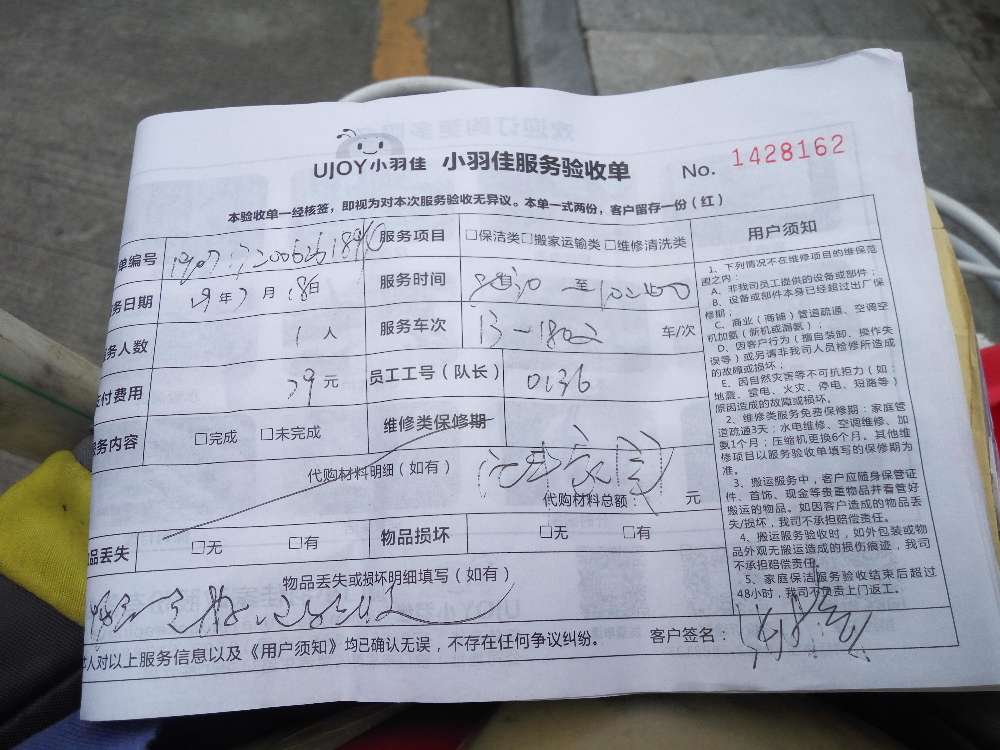 UJOY小羽佳 小羽佳服务验收单 No. 1428162
本验收单一经核签，即视为对本次服务验收无异议。本单一式两份，客户留存一份（红）
单编号 服务项目 □保洁类□搬家运输类□维修清洗类
务日期 年 月 18日 服务时间 至
务人数 1人 服务车次 13-1802 车/次
付费用 39元 员工工号（队长） 0136
务内容 □完成 □未完成 维修类保修期
代购材料明细（如有）
代购材料总额： 元
品丢失 □无 □有 物品损坏 □无 □有
物品丢失或损坏明细填写（如有）
人对以上服务信息以及《用户须知》均已确认无误，不存在任何争议纠纷。 客户签名：
用户须知
1、下列情况不在维修项目的维保范
围之内：
A、非我司员工提供的设备或部件；
B、设备或部件本身已经超过出厂保
修期；
C、商业（商铺）管道疏通、空调空
机加氨（新机或漏氨）；
D、因客户行为（擅自装卸、操作失
误等）或另请非我司人员检修所造成
的故障或损坏；
E、因自然灾害等不可抗拒力（如：
地震、雷电、火灾、停电、短路等）
原因造成的故障或损坏。
2、维修类服务免费保修期：家庭管
道疏通3天；水电维修、空调维修、加
氨1个月；压缩机更换6个月。其他维
修项目以服务验收单填写的保修期为
准。
3、搬运服务中，客户应随身保管证
件、首饰、现金等贵重物品并看管好
搬运的物品。如因客户造成的物品丢
失/损坏，我司不承担赔偿责任。
4、搬运服务验收时，如外包装或物
品外观无搬运造成的损伤痕迹，我司
不承担赔偿责任。
5、家庭保洁服务验收结束后超过
48小时，我司不负责上门返工。